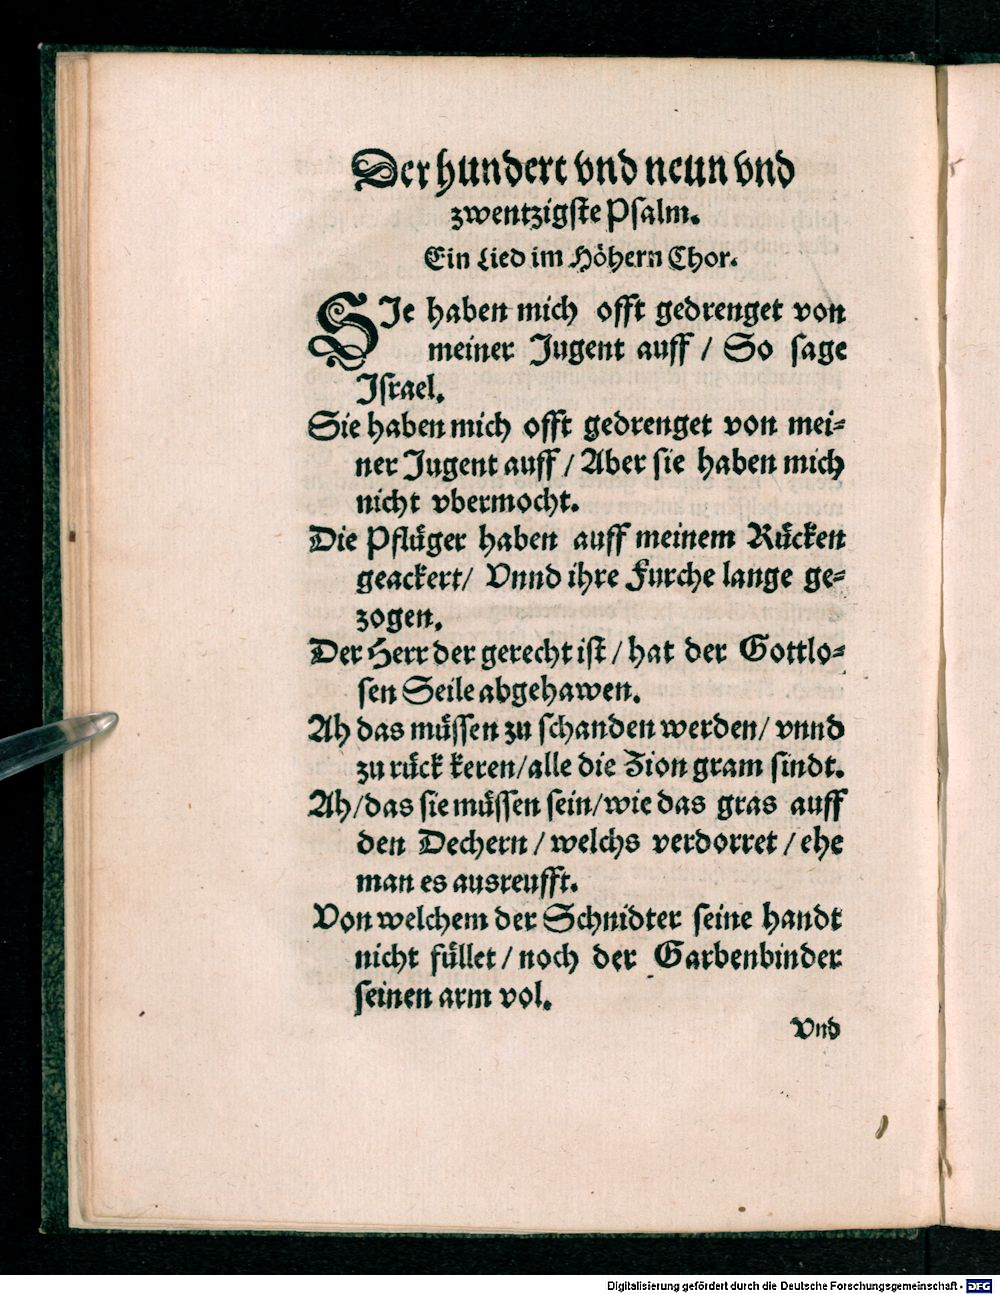 Der hundert vnd neun vnd
zwentzigste Psalm.
Ein Lied im Höhern Chor.
SIe haben mich offt gedrenget von
meiner Jugent auff / So sage
Israel.
Sie haben mich offt gedrenget von mei-
ner Jugent auff / Aber sie haben mich
nicht vbermocht.
Die Pflüger haben auff meinem Rücken
geackert/ Vnnd ihre Furche lange ge-
zogen.
Der Herr der gerecht ist / hat der Gottlo-
sen Seile abgehawen.
Ah das müssen zu schanden werden/ vnnd
zu rück keren/alle die Zion gram sindt.
Ah/das sie müssen sein/wie das gras auff
den Dechern / welchs verdorret / ehe
man es ausreufft.
Von welchem der Schnidter seine handt
nicht füllet / noch der Garbenbinder
seinen arm vol.
Vnd
Digitalisierung gefördert durch die Deutsche Forschungsgemeinschaft - DFG